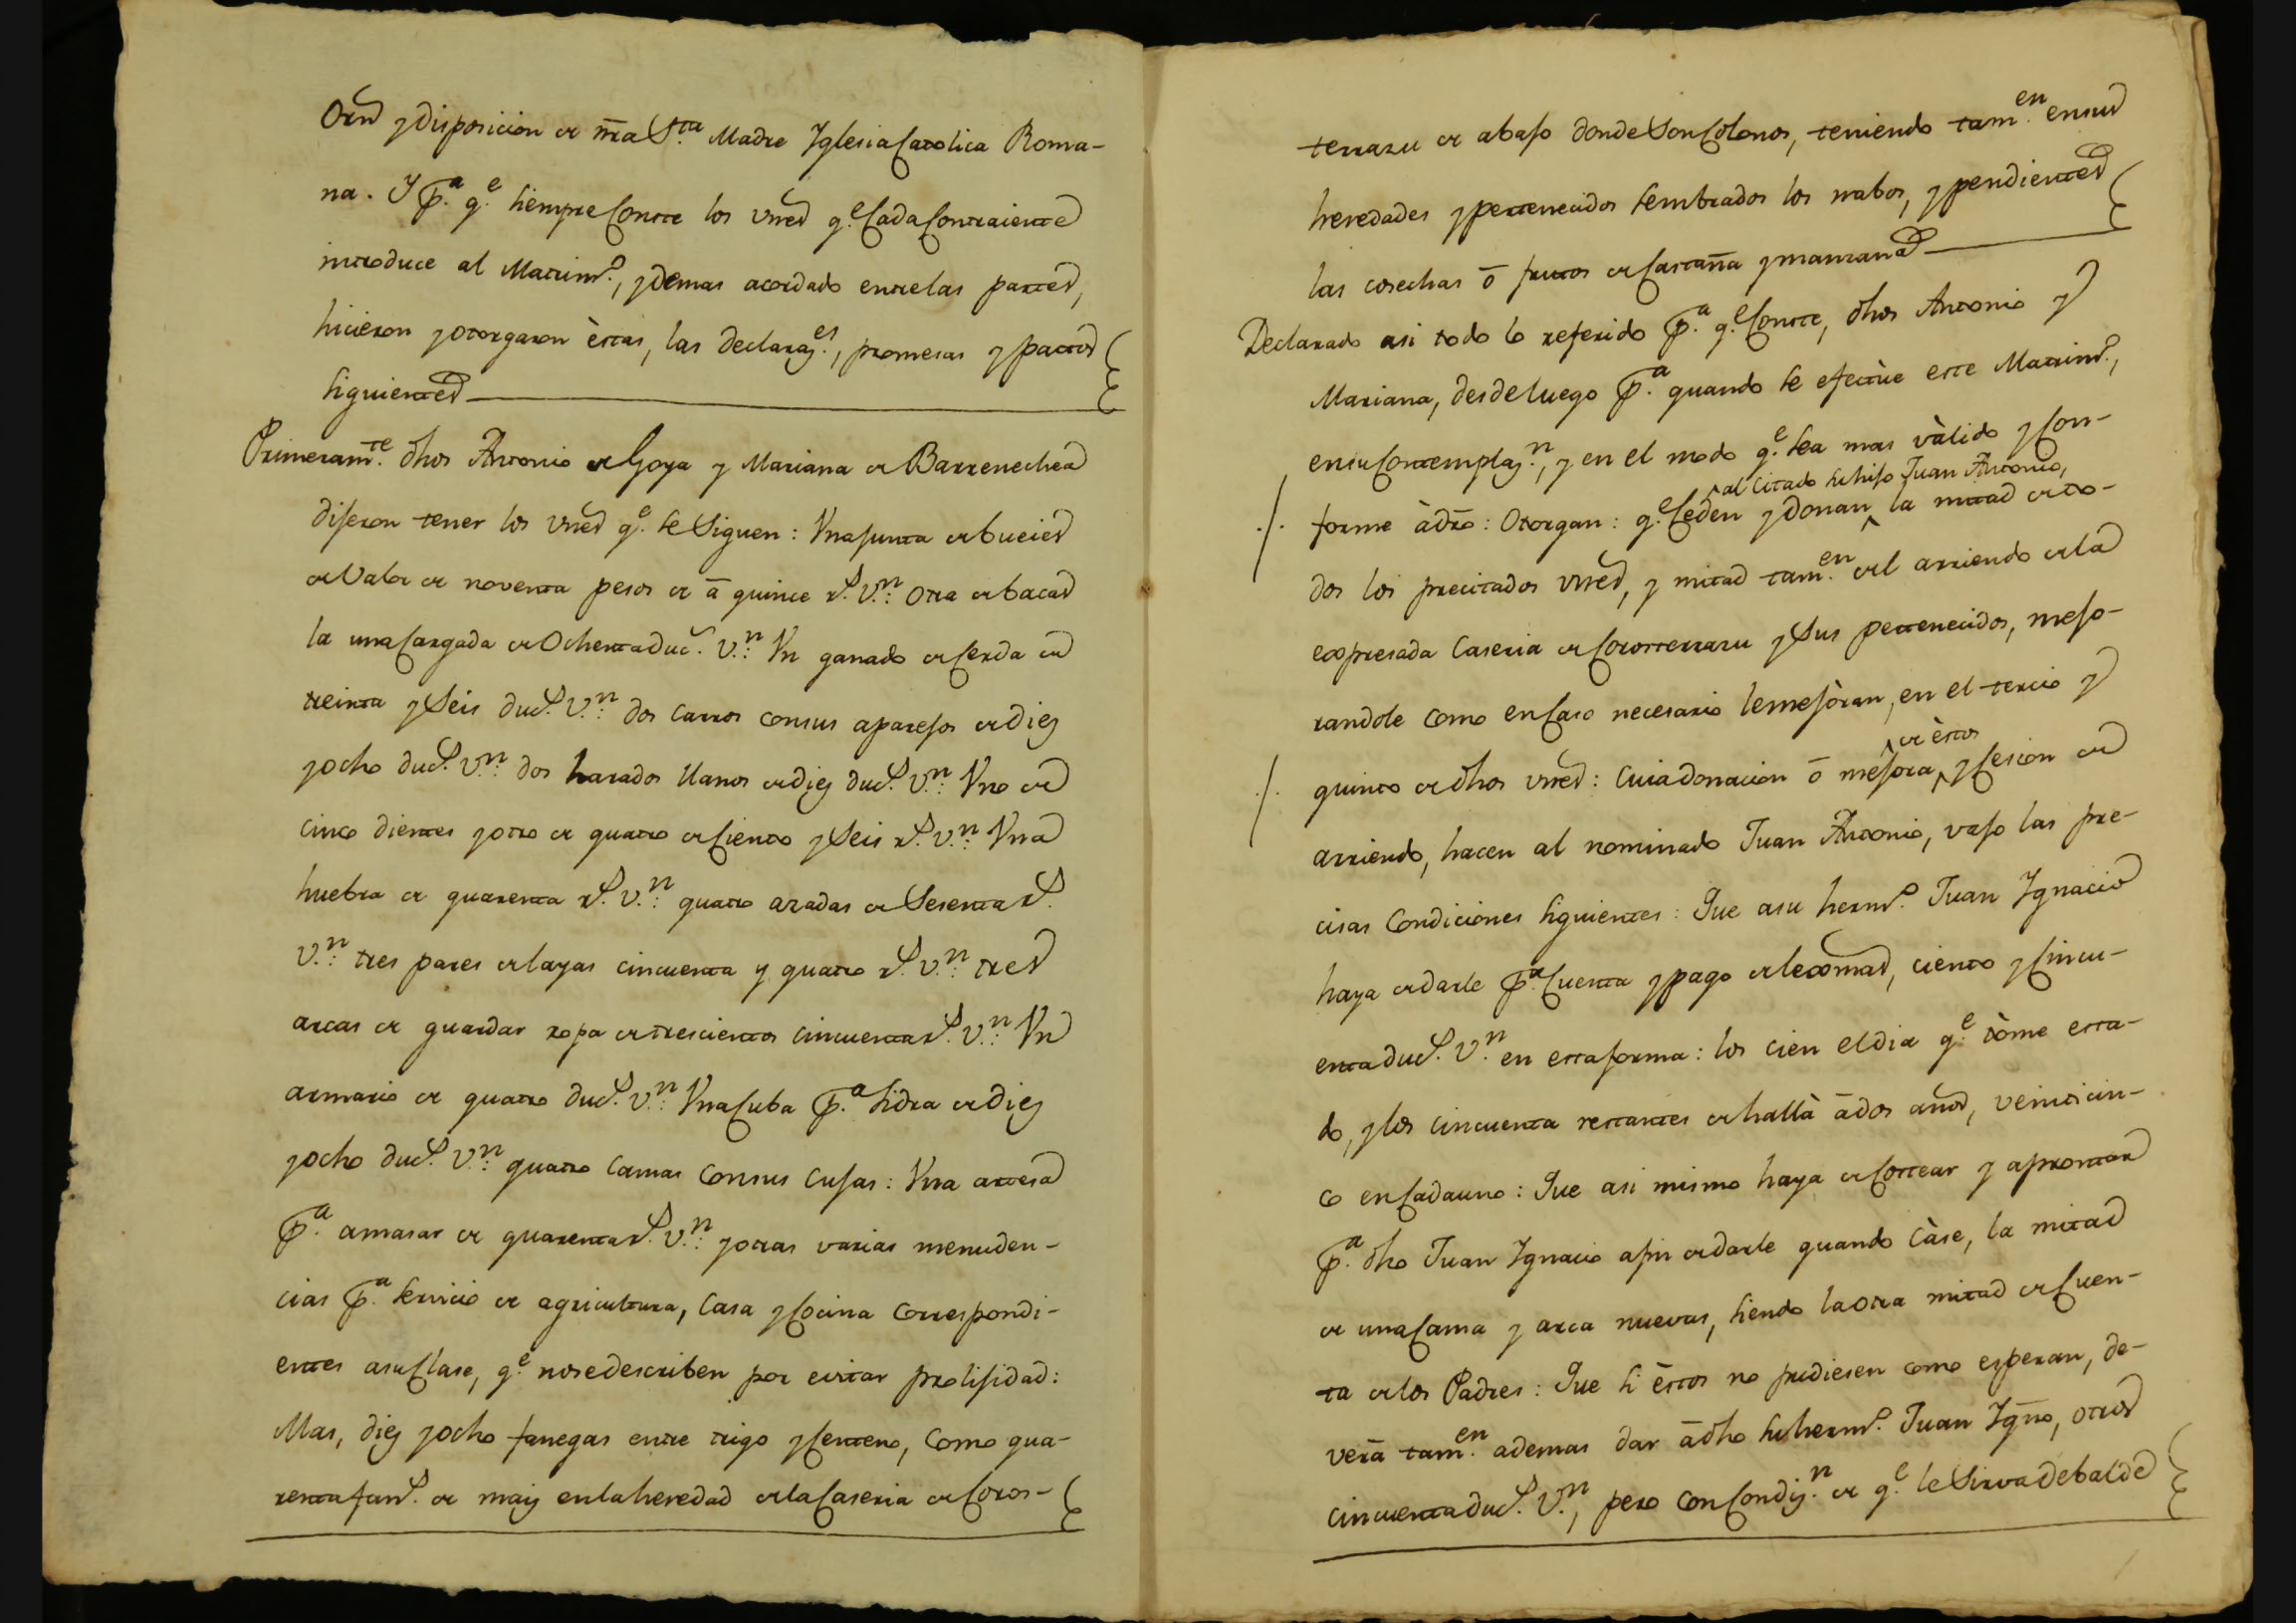 Orn y disposicion de nra Sta. Madre Yglesia Catolica Roma-
na. Y pa. qe. siempre Conste los vnes qe. Cada Contraiente
introduce al Matrimo., y demas acordado entre las partes,
hicieron y otorgaron èstas, las declarazes., promesas y pactos
siguientes
Primeramte. dhos Antonio de Goya y Mariana de Barrenechea
dijeron tener los vnes qe. se Siguen: Vna junta de bueies
de Valor de noventa pesos de ā quince rs. Vn.: otra de bacas
la una Cargada de Ochenta duc. Vn.: Vn ganado de Cerda de
treinta y Seis ducs. Vn.: dos Carros con sus aparejos de diez
y ocho ducs. Vn.: dos harados llanos de diez ducs. Vn.: Vno de
cinco dientes y otro de quatro de Ciento y Seis rs. Vn.: Vna
huebra de quarenta rs. Vn.: quatro azadas de Sesenta rs.
Vn.: tres pares de layas cincuenta y quatro rs. Vn.: tres
arcas de guardar ropa de trescientos cincuenta rs. Vn.: Vn
armario de quatro ducs. Vn.: Vna Cuba pa. sidra de diez
y ocho ducs. Vn.: quatro Camas con sus Cujas: Vna artesa
pa. amasar de quarenta rs. Vn.: y otras varias menuden-
cias pa. servicio de agricultura, Casa y Cocina correspondi-
entes a su Clase, qe. no se describen por evitar prolijidad:
Mas, diez y ocho fanegas entre trigo y Centeno, Como qua-
renta fans. de maiz en la heredad de la Caseria de Coros-
terrazu de abajo donde Son Colonos, teniendo tamen. en sus
heredades y pertenecidos sembrados los nabos, y pendientes
las cosechas ō frutos de Castaña y manzana
Declarado asi todo lo referido pa. qe. Conste, dhos Antonio y
Mariana, desde luego pa. quando se efectùe este Matrimo.,
en su Contemplazn., y en el modo qe. sea mas vàlido y Con-
al Citado su hijo Juan Antonio,
forme àdrō: Otorgan: qe. Ceden y donan la mitad de to-
dos los precitados vnes, y mitad tamen. del arriendo de la
expresada Caseria de Corosterrazu y Sus pertenecidos, mejo-
randole como en Caso necesario le mejòran, en el tercio y
de èstos
quinto de dhos vnes: Cuia donacion ō mejora, y Cesion de
arriendo, hacen al nominado Juan Antonio, vajo las pre-
cisas Condiciones siguientes: Que a su hermo. Juan Ygnacio
haya de darle pa. Cuenta y pago de lexmas, ciento y Cincu-
enta ducs. Vn. en esta forma: los cien el dia qe. tòme esta-
do, y los cincuenta restantes de hallà ādos años, veinticin-
co en Cada uno: Que asi mismo haya de Costear y aprontar
pa. dho Juan Ygnacio a fin de darle quando Càse, la mitad
de una Cama y arca nuevas, siendo la otra mitad de Cuen-
ta de los Padres: Que si èstos no pudiesen como esperan, de-
verā tamen. ademas dar ādho su hermo. Juan Ygno, otros
cincuenta ducs. Vn., pero con Condizn. de qe. le Sirva debalde